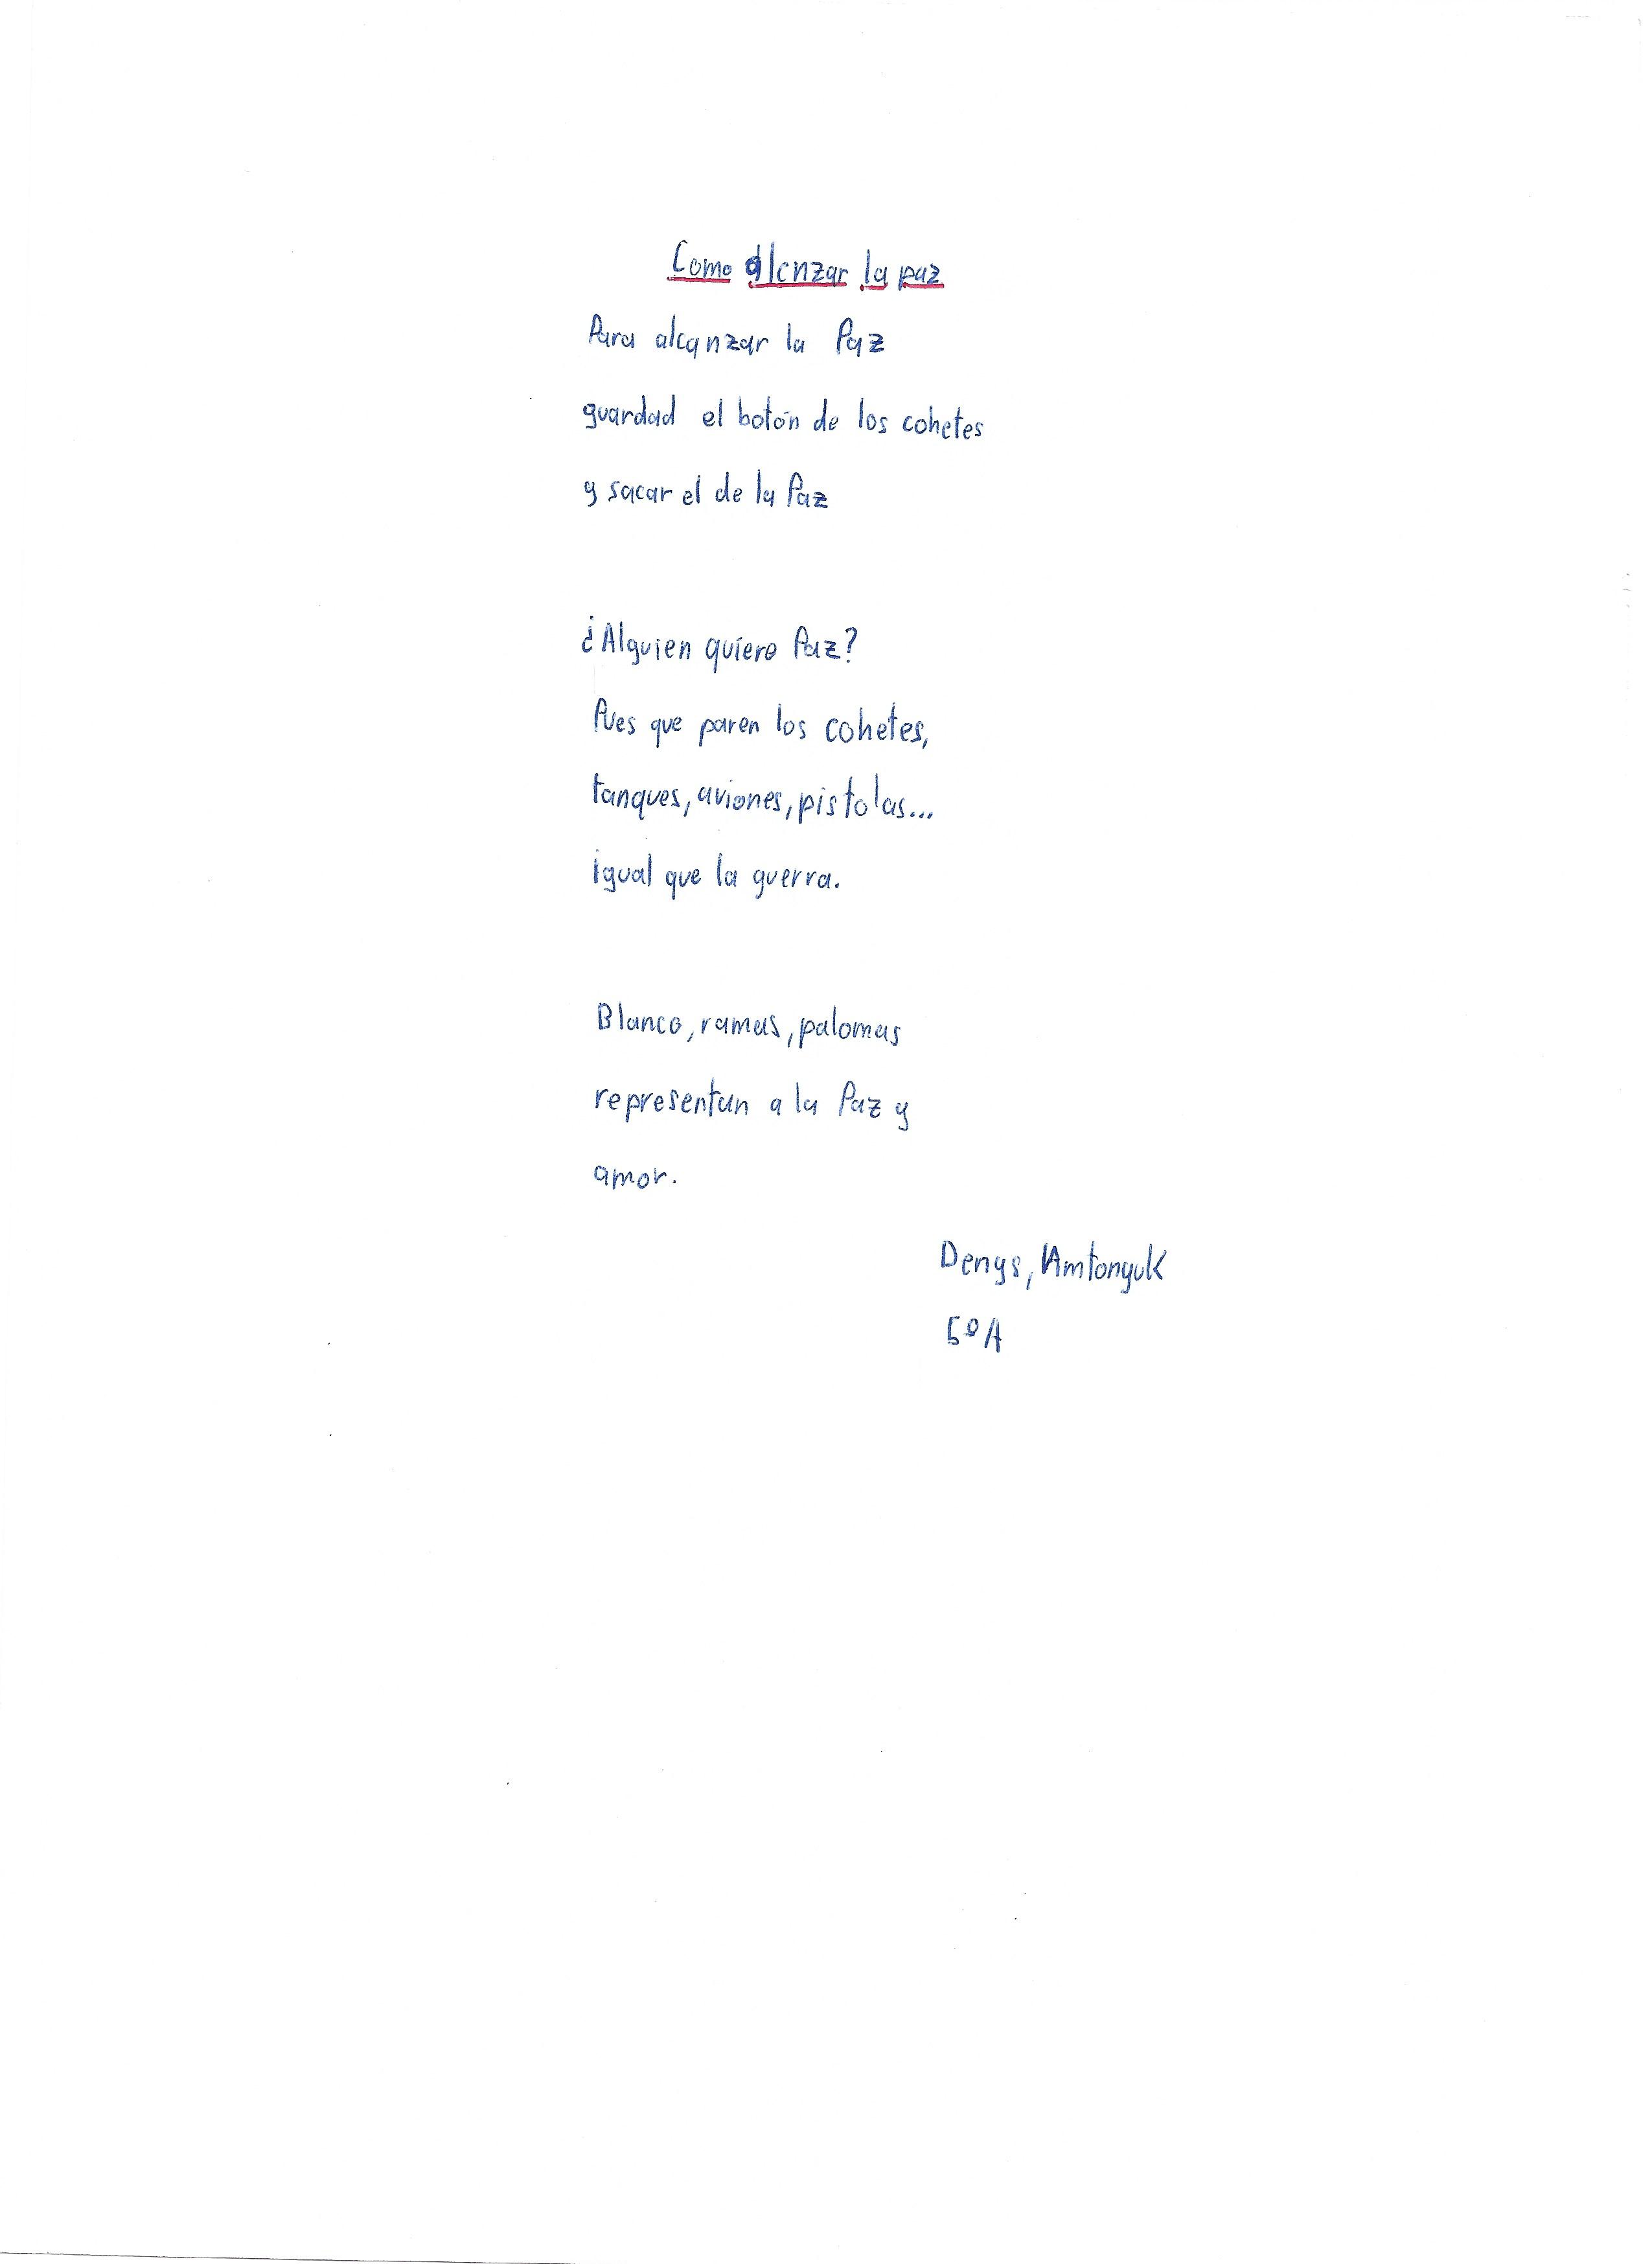 Como alcnzar la paz
Para alcanzar la Paz
guardad el botón de los cohetes
y sacar el de la Paz
¿Alguien quiere Paz?
Pues que paren los cohetes,
tanques, aviones, pistolas...
igual que la guerra.
Blanco, ramas, palomas
representan a la Paz y
amor.
Denys, Amtonyuk
5º A